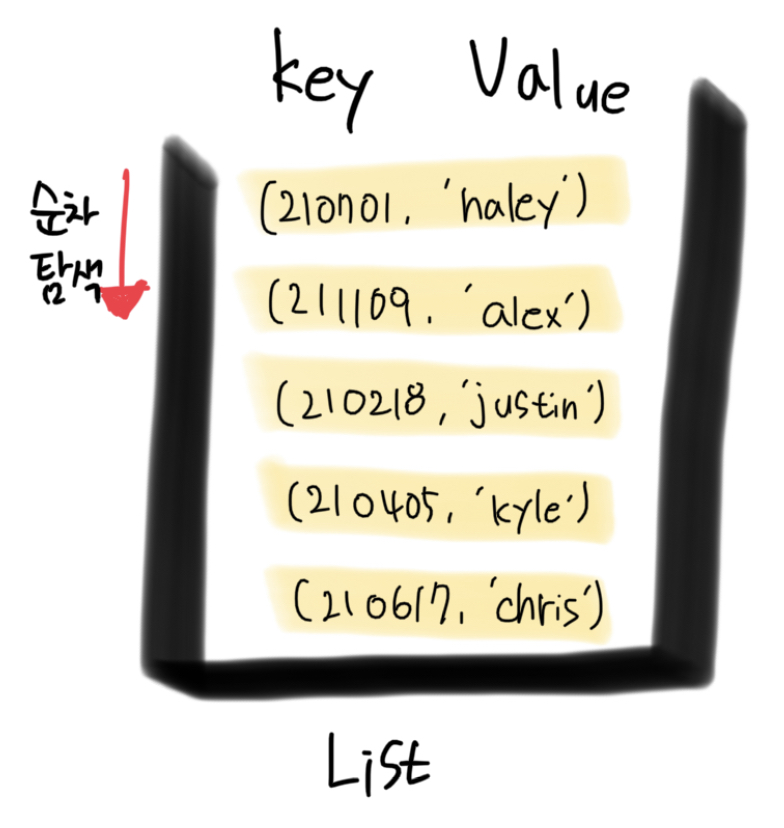 key Value
순차
탐색
(210701, 'haley')
(211109, 'alex')
(210218, 'justin')
(210405, 'kyle')
(210617, 'chris')
List